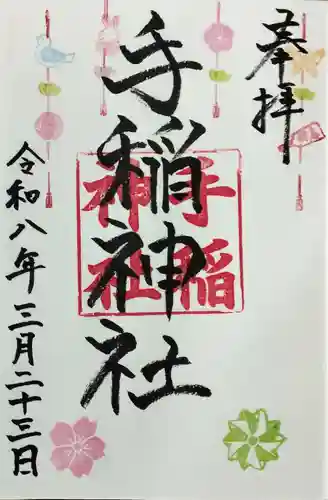 奉拝
手稲神社
手稲
神社
令和八年三月二十三日